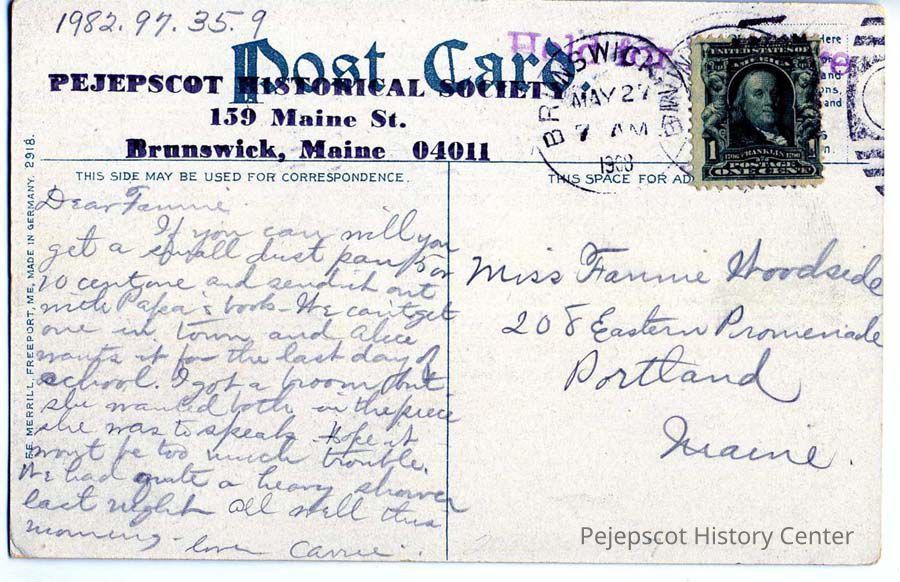 1982.97.35.9
Post Card.
PEJEPSCOT HISTORICAL SOCIETY
159 Maine St.
Brunswick, Maine 04011
Hold for
BRUNSWICK,
MAY 27
7 AM
1908
UNITED STATES OF
AMERICA
1 1706 FRANKLIN 1790 1
POSTAGE
ONE CENT
here
and
and
THIS SIDE MAY BE USED FOR CORRESPONDENCE.
THIS SPACE FOR AD
MERRILL, FREEPORT, ME, MADE IN GERMANY. 2918.
Dear Fannie
If you can will you
get a small dust pan 5 or
10 cent one and send it out
with Papa's book - We can't get
one in town and Alice
wants it for the last day of
school. I got a broom but
she wanted both in the piece
she was to speak. Hope it
wont be too much trouble.
We had quite a heavy shower
last night all well this
morning - love Carrie.
Miss Fannie Woodside
208 Eastern Promenade
Portland
Maine.
Pejepscot History Center